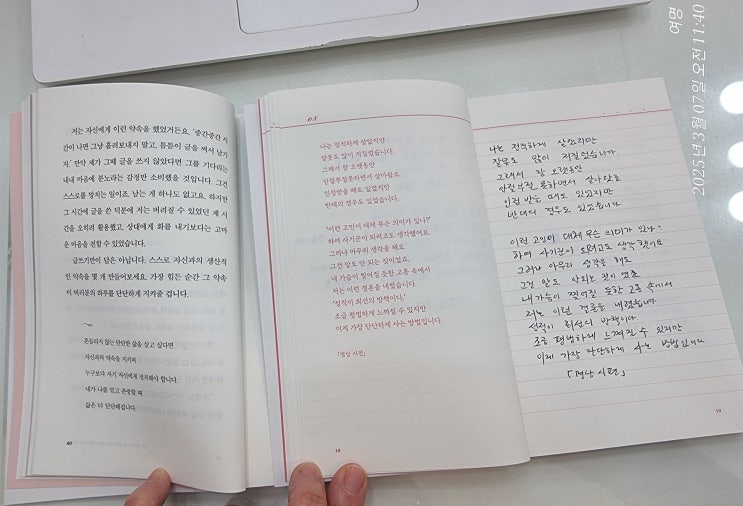 저는 자신에게 이런 약속을 했었거든요. '중간중간 시
간이 나면 그냥 흘려보내지 말고, 틈틈이 글을 써서 남기
자' 만약 제가 그때 글을 쓰지 않았다면 그를 기다리는
내내 마음에 분노라는 감정만 소비했을 것입니다. 그건
스스로를 망치는 일이죠. 남는 게 하나도 없고요. 하지만
그 시간에 글을 쓴 덕분에 저는 버려질 수 있었던 제 시
간을 오히려 활용했고, 상대에게 화를 내기보다는 고마
운 마음을 전할 수 있었습니다.
글쓰기만이 답은 아닙니다. 스스로 자신과의 생산적
인 약속을 몇 개 만들어보세요. 가장 힘든 순간 그 약속
이 여러분의 하루를 단단하게 지켜줄 겁니다.
흔들리지 않는 단단한 삶을 살고 싶다면
자신과의 약속을 지키며
누구보다 자기 자신에게 정직해야 합니다.
내가 나를 믿고 존중할 때
삶은 더 단단해집니다.
40
08
나는 정직하게 살았지만
잘못도 많이 저질렀습니다.
그래서 참 오랫동안
안절부절못하면서 살아왔죠.
인정받을 때도 있었지만
반대의 경우도 있었습니다.
'이런 고민이 대체 무슨 의미가 있나?'
하며 사기꾼이 되려고도 생각했어요.
그러나 아무리 생각을 해도
그건 말도 안 되는 짓이었죠.
내 가슴이 찢어질 듯한 고통 속에서
저는 이런 결론을 내렸습니다.
'정직이 최선의 방책이다.'
조금 평범하게 느껴질 수 있지만
이게 가장 단단하게 사는 방법입니다.
「명상 시편」
18
나는 정직하게 살았지만
잘못도 많이 저질렀습니다.
그래서 참 오랫동안
안절부절 못하면서 살아왔죠
인정 받을 때도 있었지만
반대의 경우도 있었습니다
이런 고민이 대체 무슨 의미가 있나?
하며 사기꾼이 되려고도 생각했어요
그러나 아무리 생각을 해도
그건 말도 안되는 짓이었죠
내 가슴이 찢어질 듯한 고통 속에서
저는 이런 결론을 내렸습니다.
최선의 방책이다
조금 평범하게 느껴질 수 있지만
이게 가장 단단하게 사는 방법입니다
「명상 시편」
19
여명
2025년 3월 07일 오전 11:40